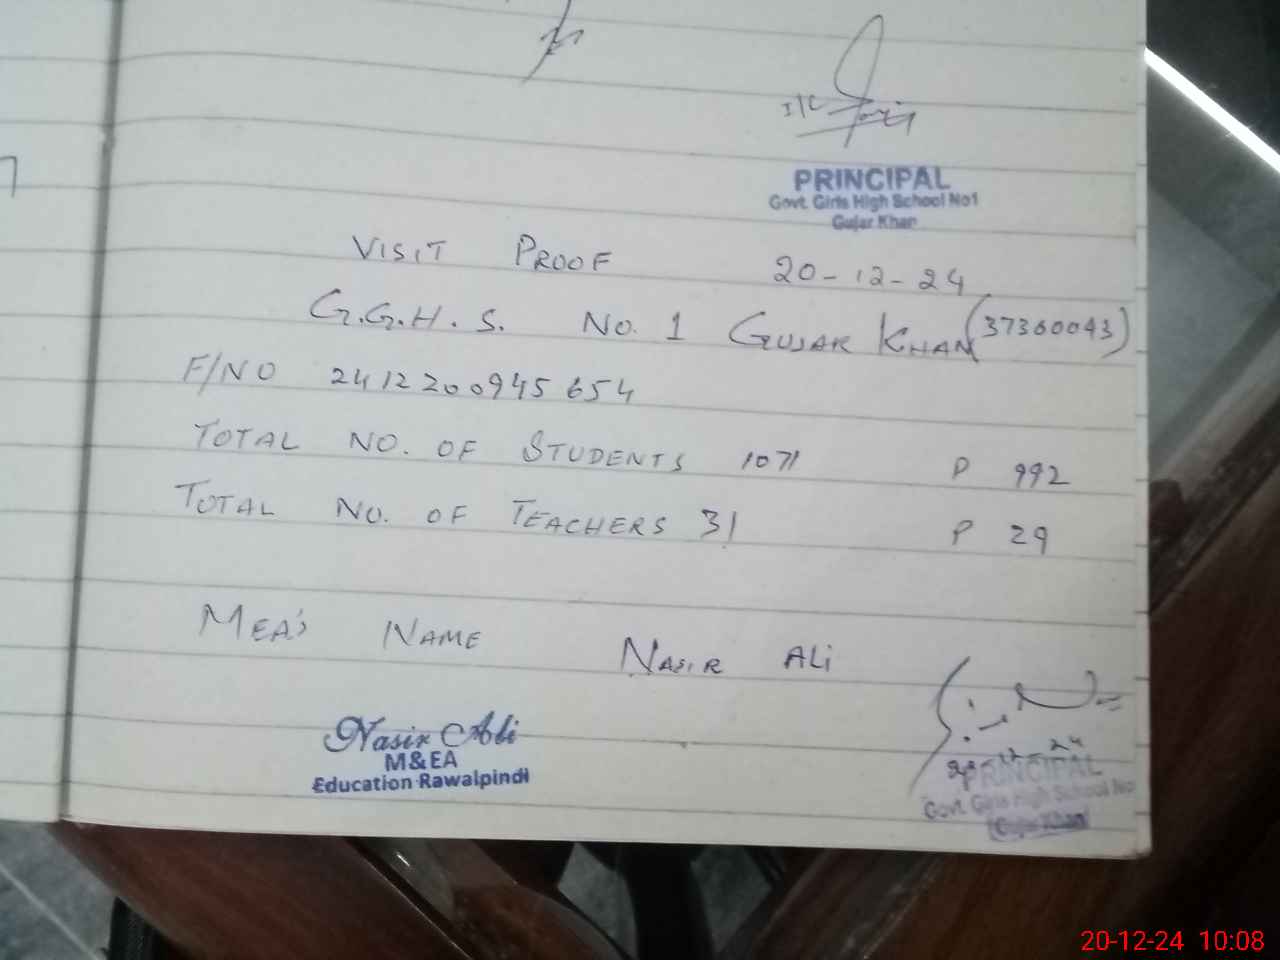 I/C
PRINCIPAL
Govt. Girls High School No1
Gujar Khan
VISIT PROOF 20-12-24
G.G.H.S. No. 1 GUJAR KHAN (37360043)
F/NO 2412200945654
TOTAL NO. OF STUDENTS 1071 P 992
TOTAL NO. OF TEACHERS 31 P 29
MEA'S NAME NASIR ALI
Nasir Ali
M&EA
Education Rawalpindi
20-12-24
PRINCIPAL
Govt. Girls High School No
Gujar Khan
20-12-24 10:08